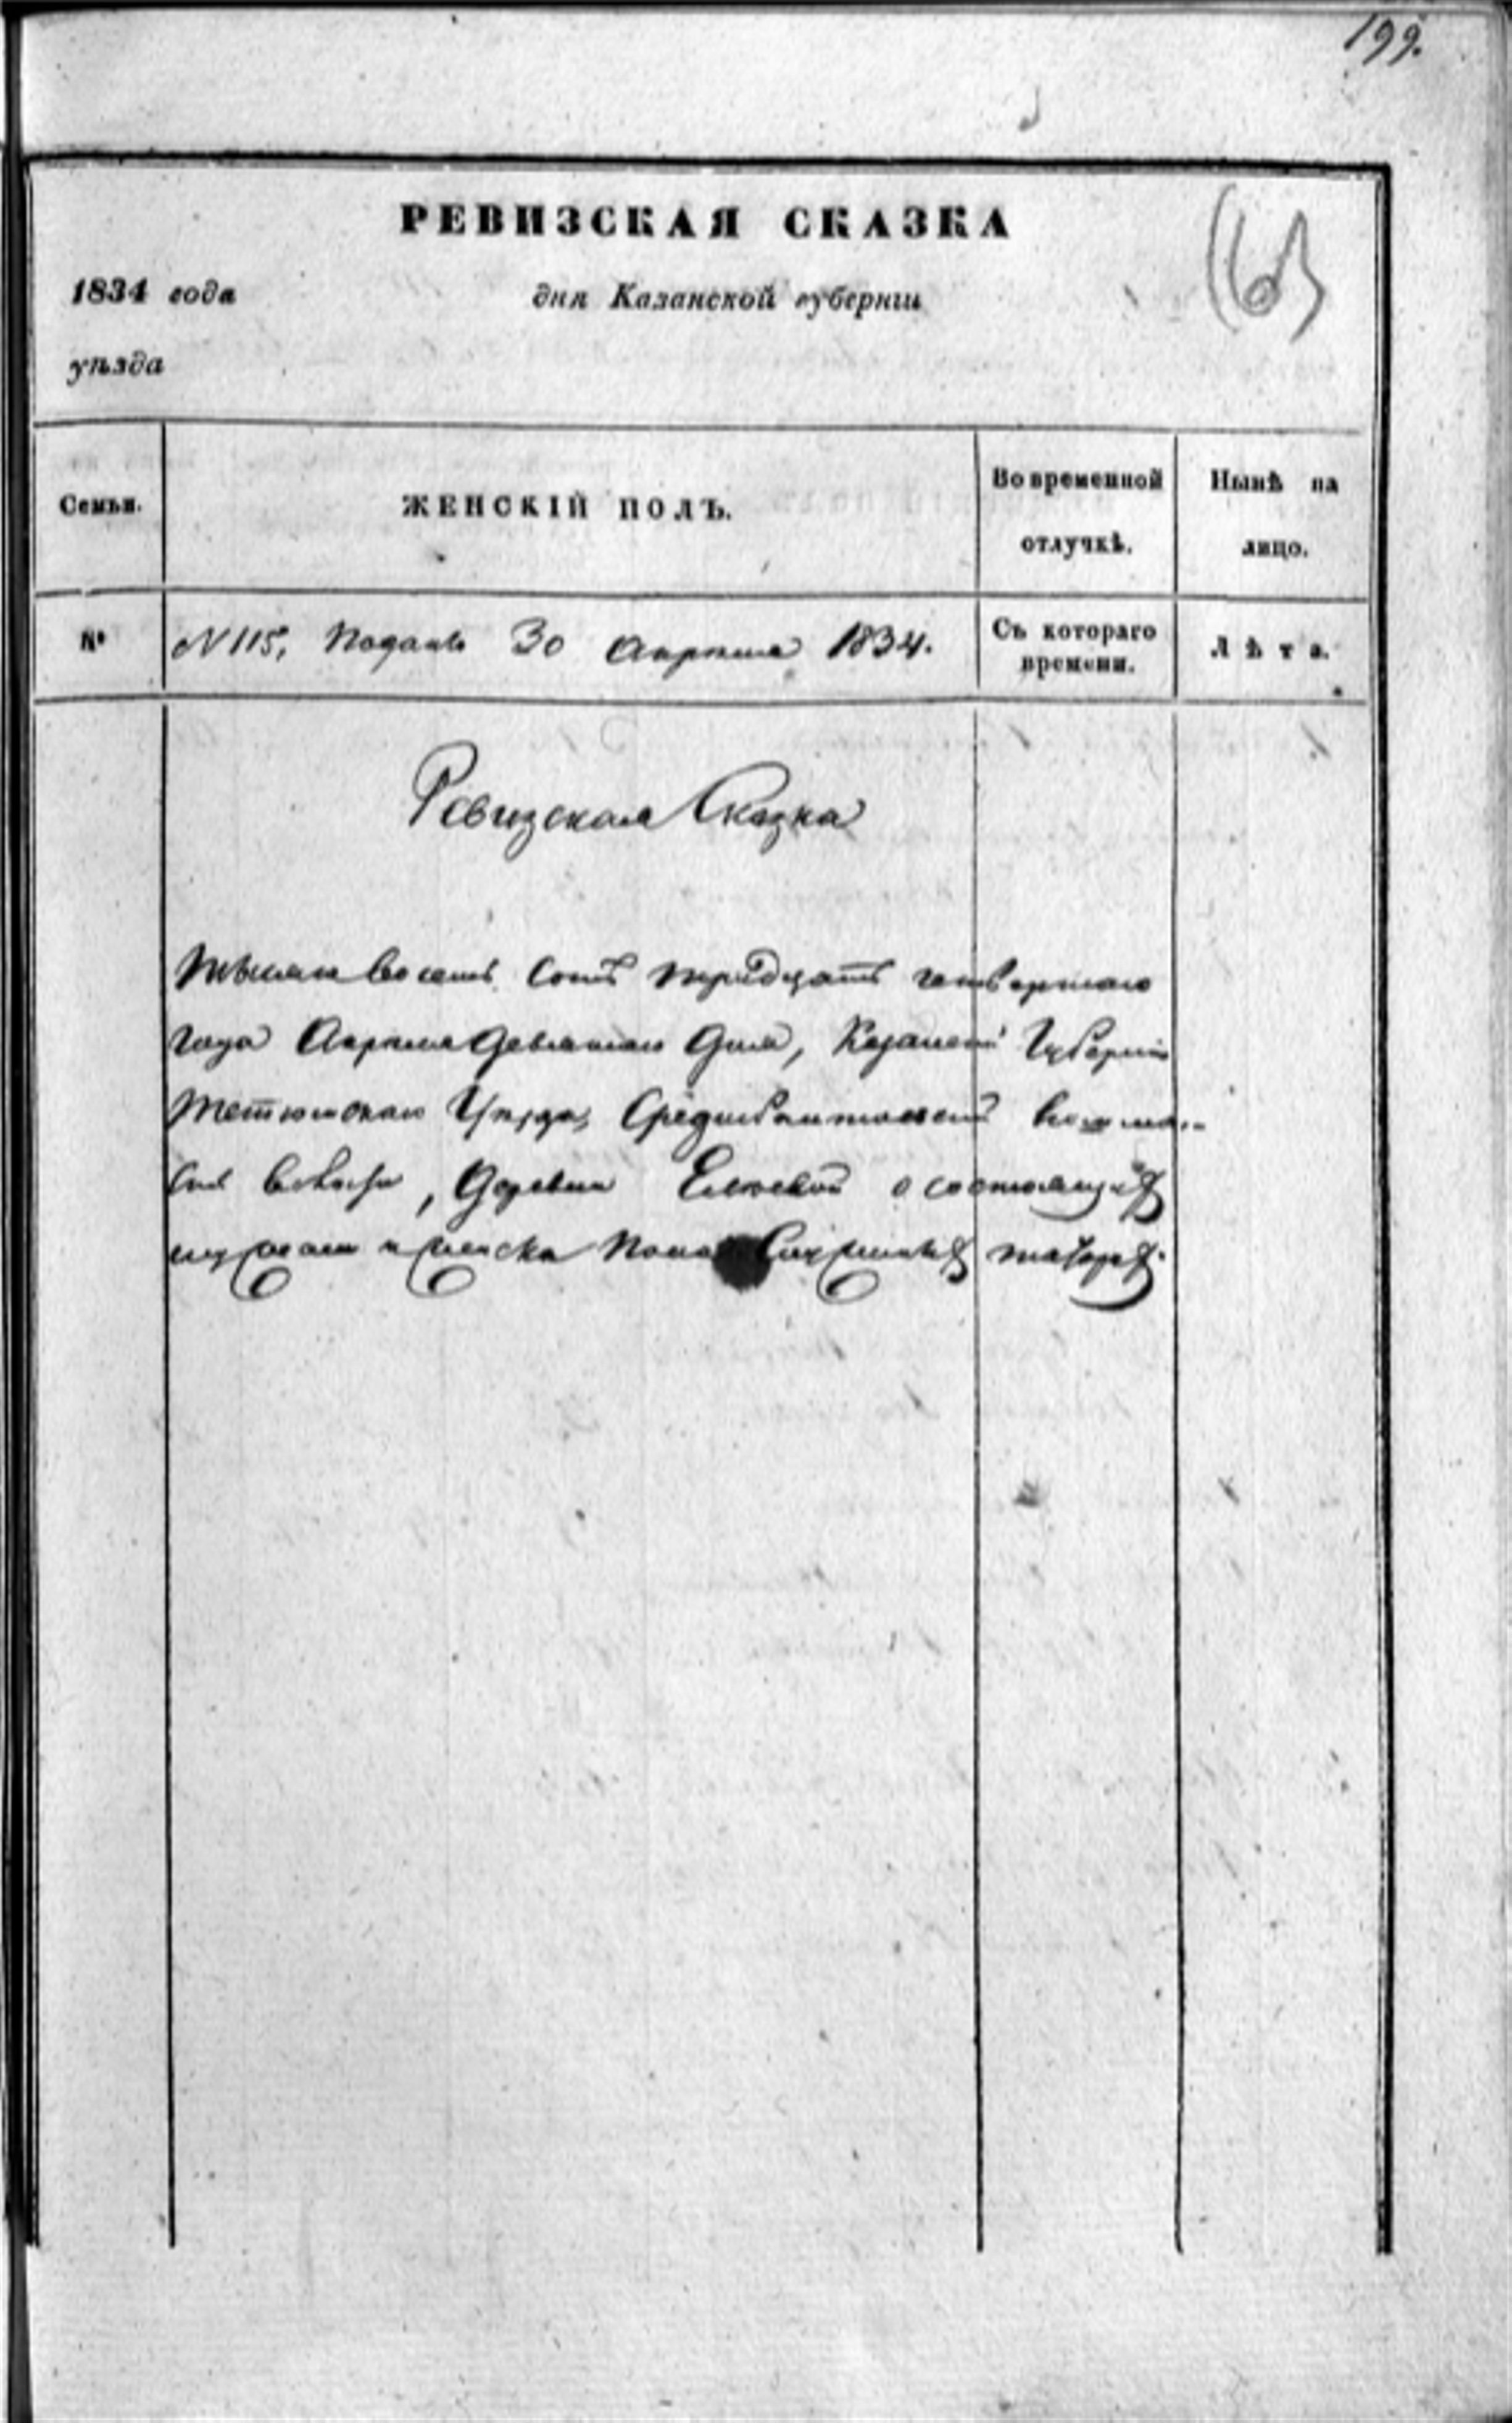 199.
РЕВИЗСКАЯ СКАЗКА
(63
1834 года дня Казанской губерніи
уѣзда
Семьи. ЖЕНСКІЙ ПОЛЪ. Во временной отлучкѣ. Нынѣ на лицо.
№ N 115, Подана 30 Апреля 1834. Съ котораго времени. Лѣта.
Ревизская Сказка
тысяча восемь сотъ тридцать четвертаго
года Апреля девятаго дня, Казанской Губерніи
Тетюшскаго Уезда,
деревни о состоящихъ
мужеска и женска пола татарахъ.